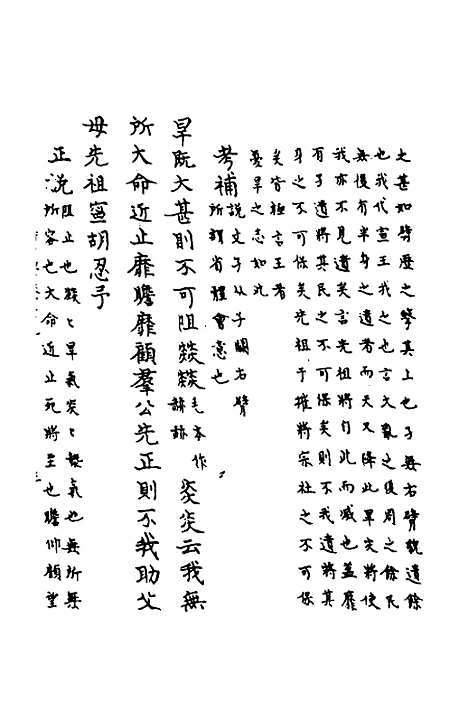 之甚如辟歷之擊其上也孑無右臂貌遺餘
也我代宣王我之也言大亂之後周之餘民
無復有半身之遺者而天又降此旱災將使
我亦不見遺矣言先祖將自此而滅也蓋靡
有孑遺將其民之不可保矣則不我遺將其
身之不可保矣先祖于摧將宗社之不可保
矣皆極言王者
憂旱之志如此
考補說文孑从子闕右臂
所謂省體會意也
旱既大甚則不可阻燚燚毛本作赫赫炎炎云我無
所大命近止靡瞻靡顧羣公先正則不我助父
母先祖寧胡忍予
正說阻止也燚〻旱氣炎〻熱氣也無所無
所容也大命近止死將至也瞻仰顧望